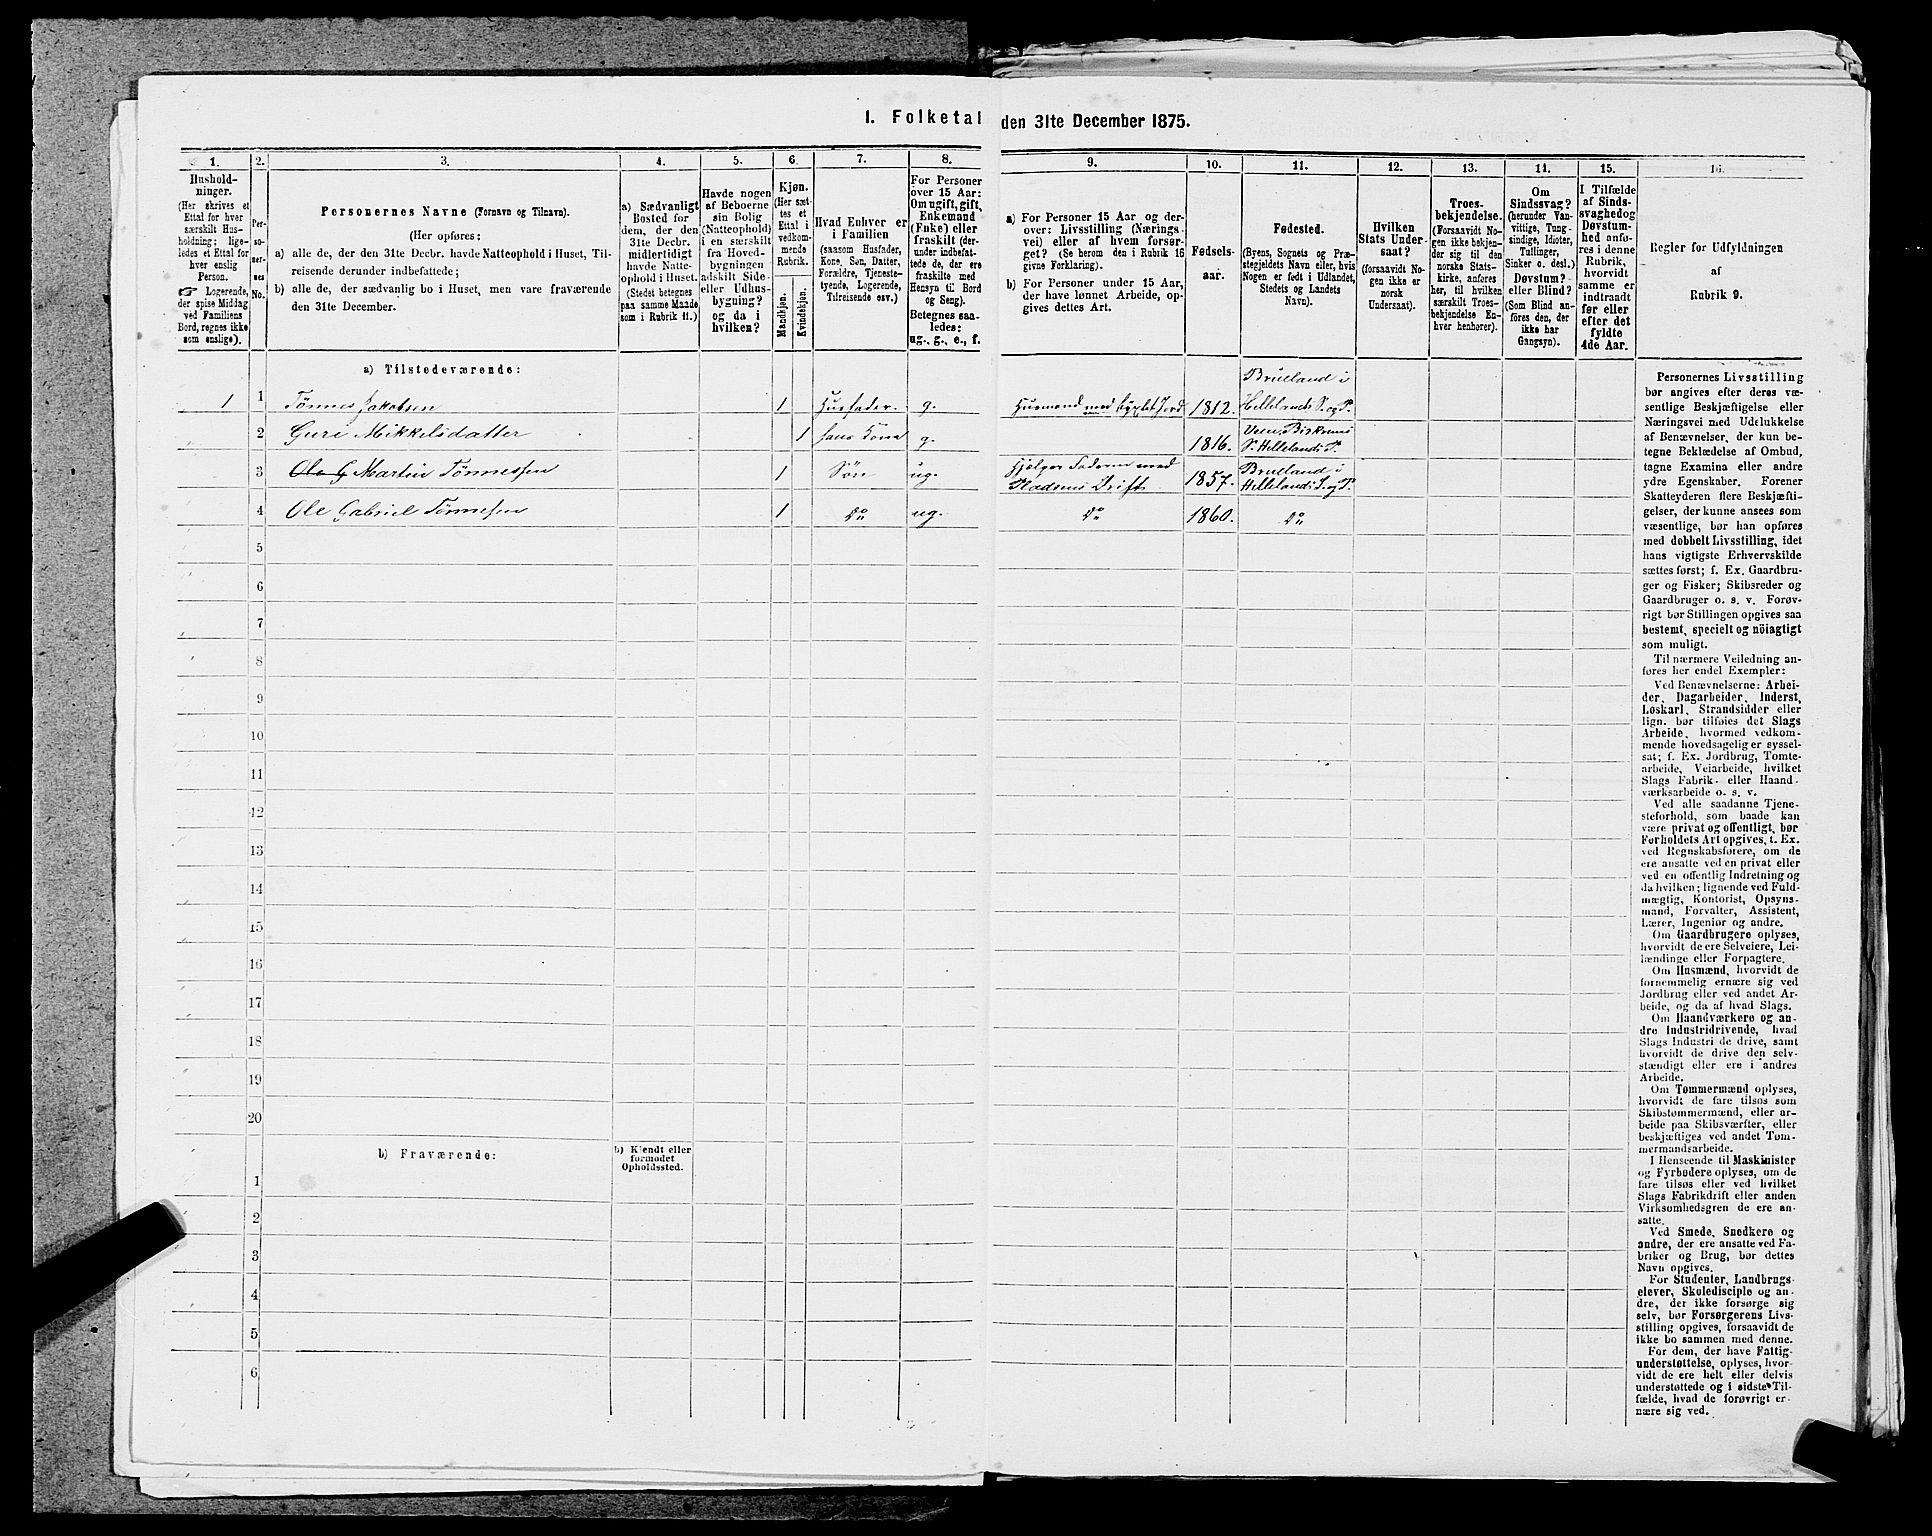 1. Folketal den 31te December 1875.
1.
2.
3.
4.
5.
6.
7.
8.
9.
10.
11.
12.
13.
14.
15.
16.
Hushold-
ninger.
(Her skrives et
Ettal for hver
særskilt Hus-
holdning; lige-
ledes et Ettal for
hver enslig
Person.
☞ Logerende,
der spise Middag
ved Familiens
Bord, regnes ikke
som enslige).
Per-
so-
ner-
nes
No.
Personernes Navne (Fornavn og Tilnavn).
(Her opføres:
a) alle de, der den 31te Decbr. havde Natteophold i Huset, Til-
reisende derunder indbefattede;
b) alle de, der sædvanlig bo i Huset, men vare fraværende
den 31te December.
a) Sædvanligt
Bosted for
dem, der den
31te Decbr.
midlertidigt
havde Natte-
ophold i Huset.
(Stedet betegnes
paa samme Maade
som i Rubrik 11.)
Havde nogen
af Beboerne
sin Bolig
(Natteophold)
i en særskilt
fra Hoved-
bygningen
adskilt Side-
eller Udhus-
bygning?
og da i
hvilken?
Kjøn.
(Her sæt-
tes et
Ettal i
vedkom-
mende
Rubrik.
Mandkjøn.
Kvindekjøn.
Hvad Enhver er
i Familien
(saasom Husfader,
Kone, Søn, Datter,
Forældre, Tjeneste-
tyende, Logerende,
Tilreisende osv.)
For Personer
over 15 Aar:
Om ugift, gift,
Enkemand
(Enke) eller
fraskilt (der-
under indbefat-
tede de, der ere
fraskilte med
Hensyn til Bord
og Seng).
Betegnes saa-
ledes:
ug., g., e., f.
a) For Personer 15 Aar og der-
over: Livsstilling (Nærings-
vei) eller af hvem forsør-
get? (Se herom den i Rubrik 16
givne Forklaring).
b) For Personer under 15 Aar,
der have lønnet Arbeide, op-
gives dettes Art.
Fødsels-
aar.
Fødested.
(Byens, Sognets og Præ-
stegjeldets Navn eller, hvis
Nogen er født i Udlandet,
Stedets og Landets
Navn).
Hvilken
Stats Under-
saat?
(forsaavidt No-
gen ikke er
norsk
Undersaat).
Troes-
bekjendelse.
(Forsaavidt No-
gen ikke bekjen-
der sig til den
norske Stats-
kirke, anføres
her, til hvilken
særskilt Troes-
bekjendelse En-
hver henhører).
Om
Sindssvag?
(herunder Van-
vittige, Tung-
sindige, Idioter,
Tullinger,
Sinker o. desl.)
Døvstum?
eller Blind?
(Som Blind an-
føres den, der
ikke har
Gangsyn).
I Tilfælde
af Sinds-
svaghed og
Døvstum-
hed anfø-
res i denne
Rubrik,
hvorvidt
samme er
indtraadt
før eller
efter det
fyldte
4de Aar.
Regler for Udfyldningen
af
Rubrik 9.
a) Tilstedeværende:
Brülland i
1 1 Tønnes Jakobsen 1 Husfader. g. Husmand med dyrket Jord 1812. Hellelands S. og P.
2 Guri Mikkelsdatter 1 hans Kone g. 1816. S. Hellelands P.
3 Ole G Martin Tønnessen 1 Søn ug. Hjelper Faderen med
Pladsens Drift 1857. Brülland i Hellelands S. og P.
4 Ole Gabriel Tønnesen 1 Do ug. Do 1860. Do
5
6
7
8
9
10
11
12
13
14
15
16
17
18
19
20
b) Fraværende:
b) Kjendt eller
formodet
Opholdssted.
1
2
3
4
5
6
Personernes Livsstilling
bør angives efter deres væ-
sentlige Beskjæftigelse eller
Næringsvei med Udelukkelse
af Benævnelser, der kun be-
tegne Beklædelse af Ombud,
tagne Examina eller andre
ydre Egenskaber. Forener
Skatteyderen flere Beskjæfti-
gelser, der kunne ansees som
væsentlige, bør han opføres
med dobbelt Livsstilling, idet
hans vigtigste Erhvervskilde
sættes først; f. Ex. Gaardbru-
ger og Fisker; Skibsreder og
Gaardbruger o. s. v. Forøv-
rigt bør Stillingen opgives saa
bestemt, specielt og nøiagtigt
som muligt.
Til nærmere Veiledning an-
føres her endel Exempler:
Ved Benævnelserne: Arbei-
der, Dagarbeider, Inderst,
Løskarl, Strandsidder eller
lign. bør tilføies det Slags
Arbeide, hvormed vedkom-
mende hovedsagelig er syssel-
sat; f. Ex. Jordbrug, Tomte-
arbeide, Veiarbeide, hvilket
Slags Fabrik- eller Haand-
værksarbeide o. s. v.
Ved alle saadanne Tjene-
steforhold, som baade kan
være privat og offentligt, bør
Forholdets Art opgives, t. Ex.
ved Regnskabsførere, om de
ere ansatte ved en privat eller
ved en offentlig Indretning og
da hvilken; lignende ved Fuld-
mægtig, Kontorist, Opsyns-
mand, Forvalter, Assistent,
Lærer, Ingeniør og andre.
Om Gaardbrugere oplyses,
hvorvidt de ere Selveiere, Lei-
lændinge eller Forpagtere.
Om Husmænd, hvorvidt de
fornemmelig ernære sig ved
Jordbrug eller ved andet Ar-
beide, og da af hvad Slags.
Om Haandværkere og an-
dre Industridrivende, hvad
Slags Industri de drive, samt
hvorvidt de drive den selv-
stændigt eller ere i andres
Arbeide.
Om Tømmermænd oplyses,
hvorvidt de fare tilsøs som
Skibstømmermænd, eller ar-
beide paa Skibsværfter, eller
beskjæftiges ved andet Tøm-
mermandsarbeide.
I Henseende til Maskinister
og Fyrbødere oplyses, om de
fare tilsøs eller ved hvilket
Slags Fabrikdrift eller anden
Virksomhedsgren de ere an-
satte.
Ved Smede, Snedkere og
andre, der ere ansatte ved Fa-
briker og Brug, bør dettes
Navn opgives.
For Studenter, Landbrugs-
elever, Skoledisciple og an-
dre, der ikke forsørge sig
selv, bør Forsørgerens Livs-
stilling opgives, forsaavidt de
ikke bo sammen med denne.
For dem, der have Fattig-
understøttelse, oplyses, hvor-
vidt de ere helt eller delvis
understøttede og i sidste Til-
fælde, hvad de forøvrigt er-
nære sig ved.